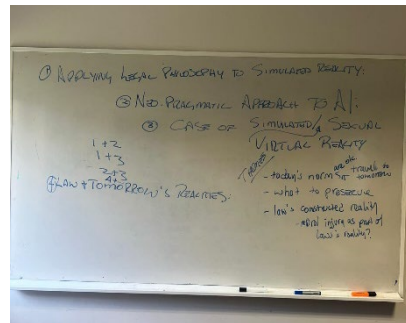 ① APPLYING LEGAL PHILOSOPHY TO SIMULATED REALITY:
② NEO-PRAGMATIC APPROACH TO AI:
③ CASE OF SIMULATED/ SEXUAL
VIRTUAL REALITY
1+2
1+3
2+3
④ LAW + TOMORROW'S REALITIES.
THEMES
- today's norms travel to tomorrow
- what to preserve
- law's constructed reality
- moral injury as part of
law's reality?